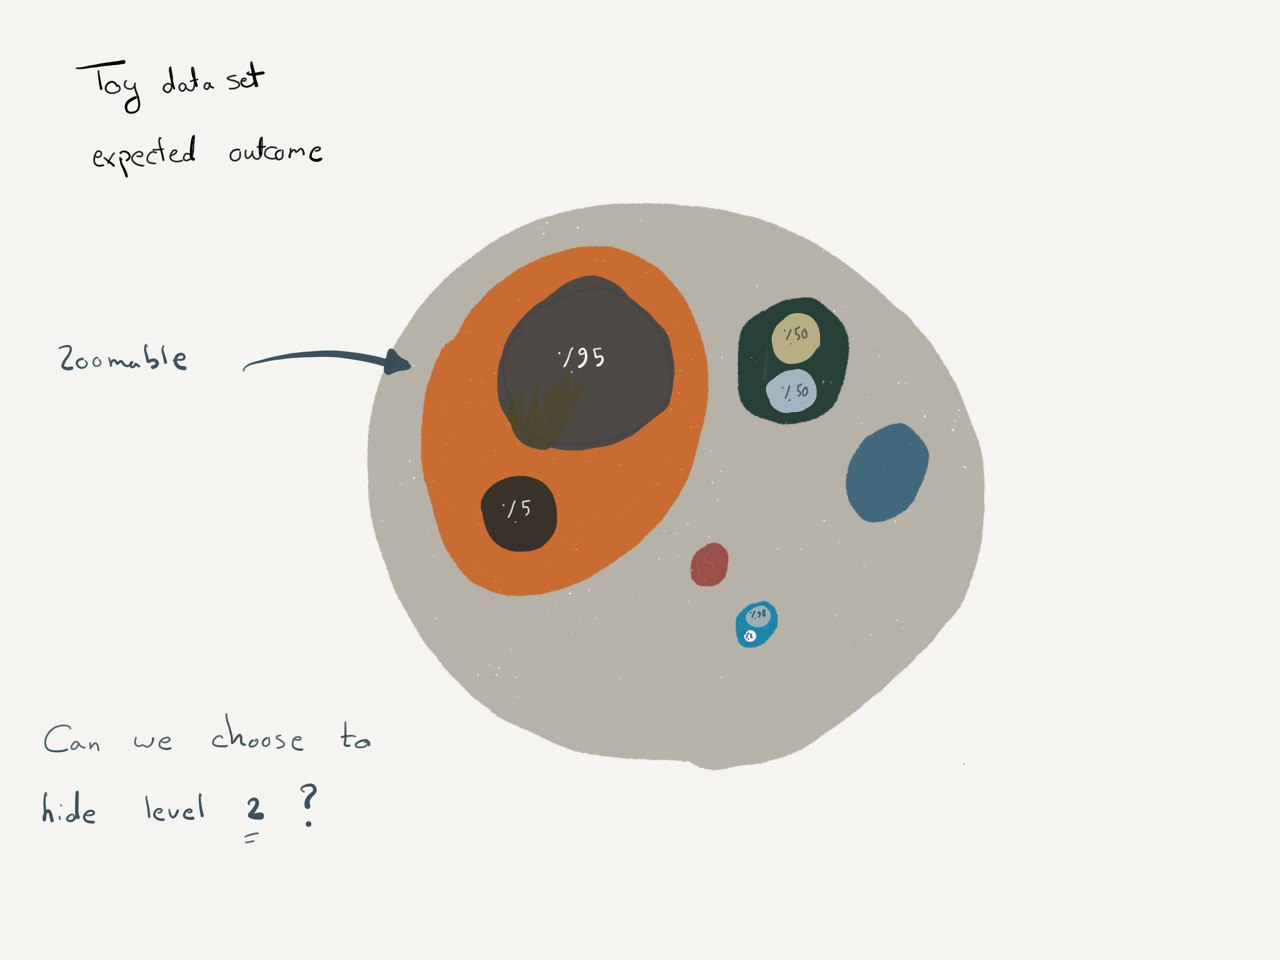 Toy data set
expected outcome
Zoomable
٪95
٪5
٪50
٪50
٪98
Can we choose to
hide level 2 ?